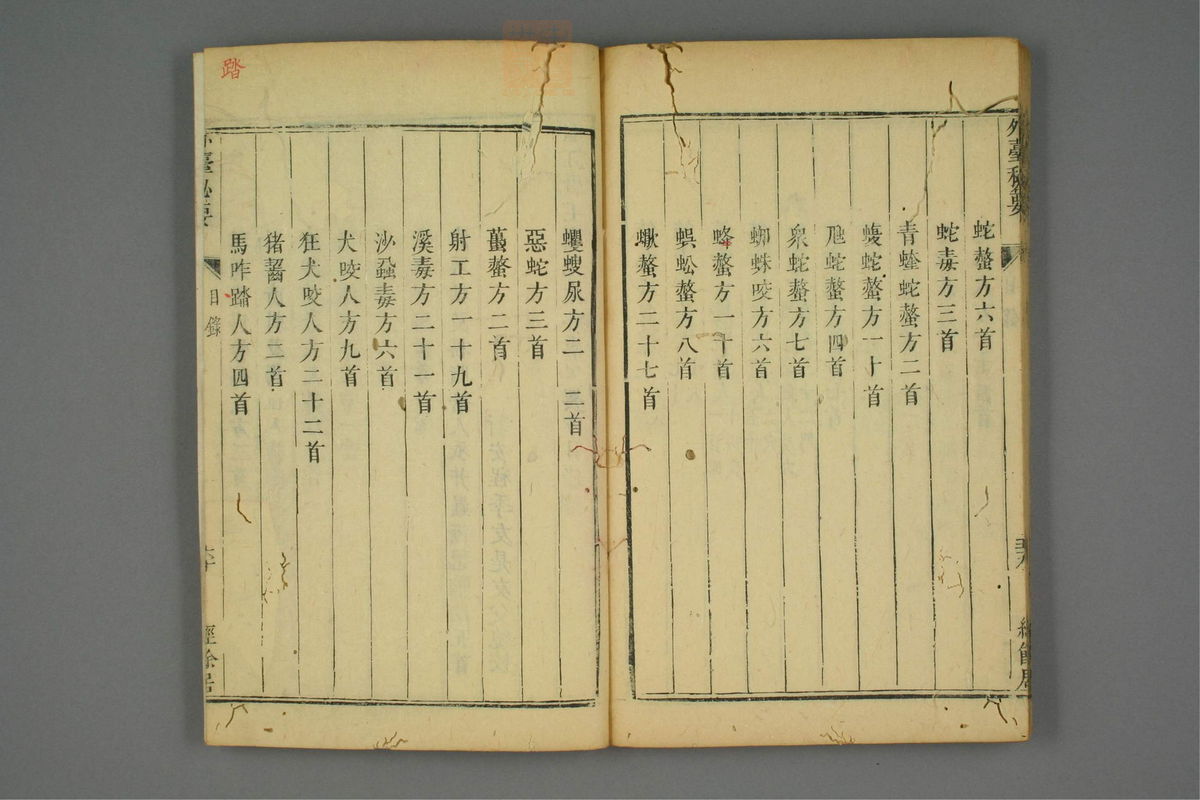 外臺秘要
蛇螫方六首
蛇毒方三首
青蝰蛇螫方二首
蝮蛇螫方一十首
虺蛇螫方四首
衆蛇螫方七首
蜘蛛咬方六首
蜂螫方一十首
蜈蚣螫方八首
蠍螫方二十七首
蠼螋尿方二 二首
惡蛇方三首
蠆螫方二首
射工方一十九首
溪毒方二十一首
沙蝨毒方六首
犬咬人方九首
狂犬咬人方二十二首
猪齧人方二首
馬咋蹹人方四首
臺秘要
目錄
經餘居
踏